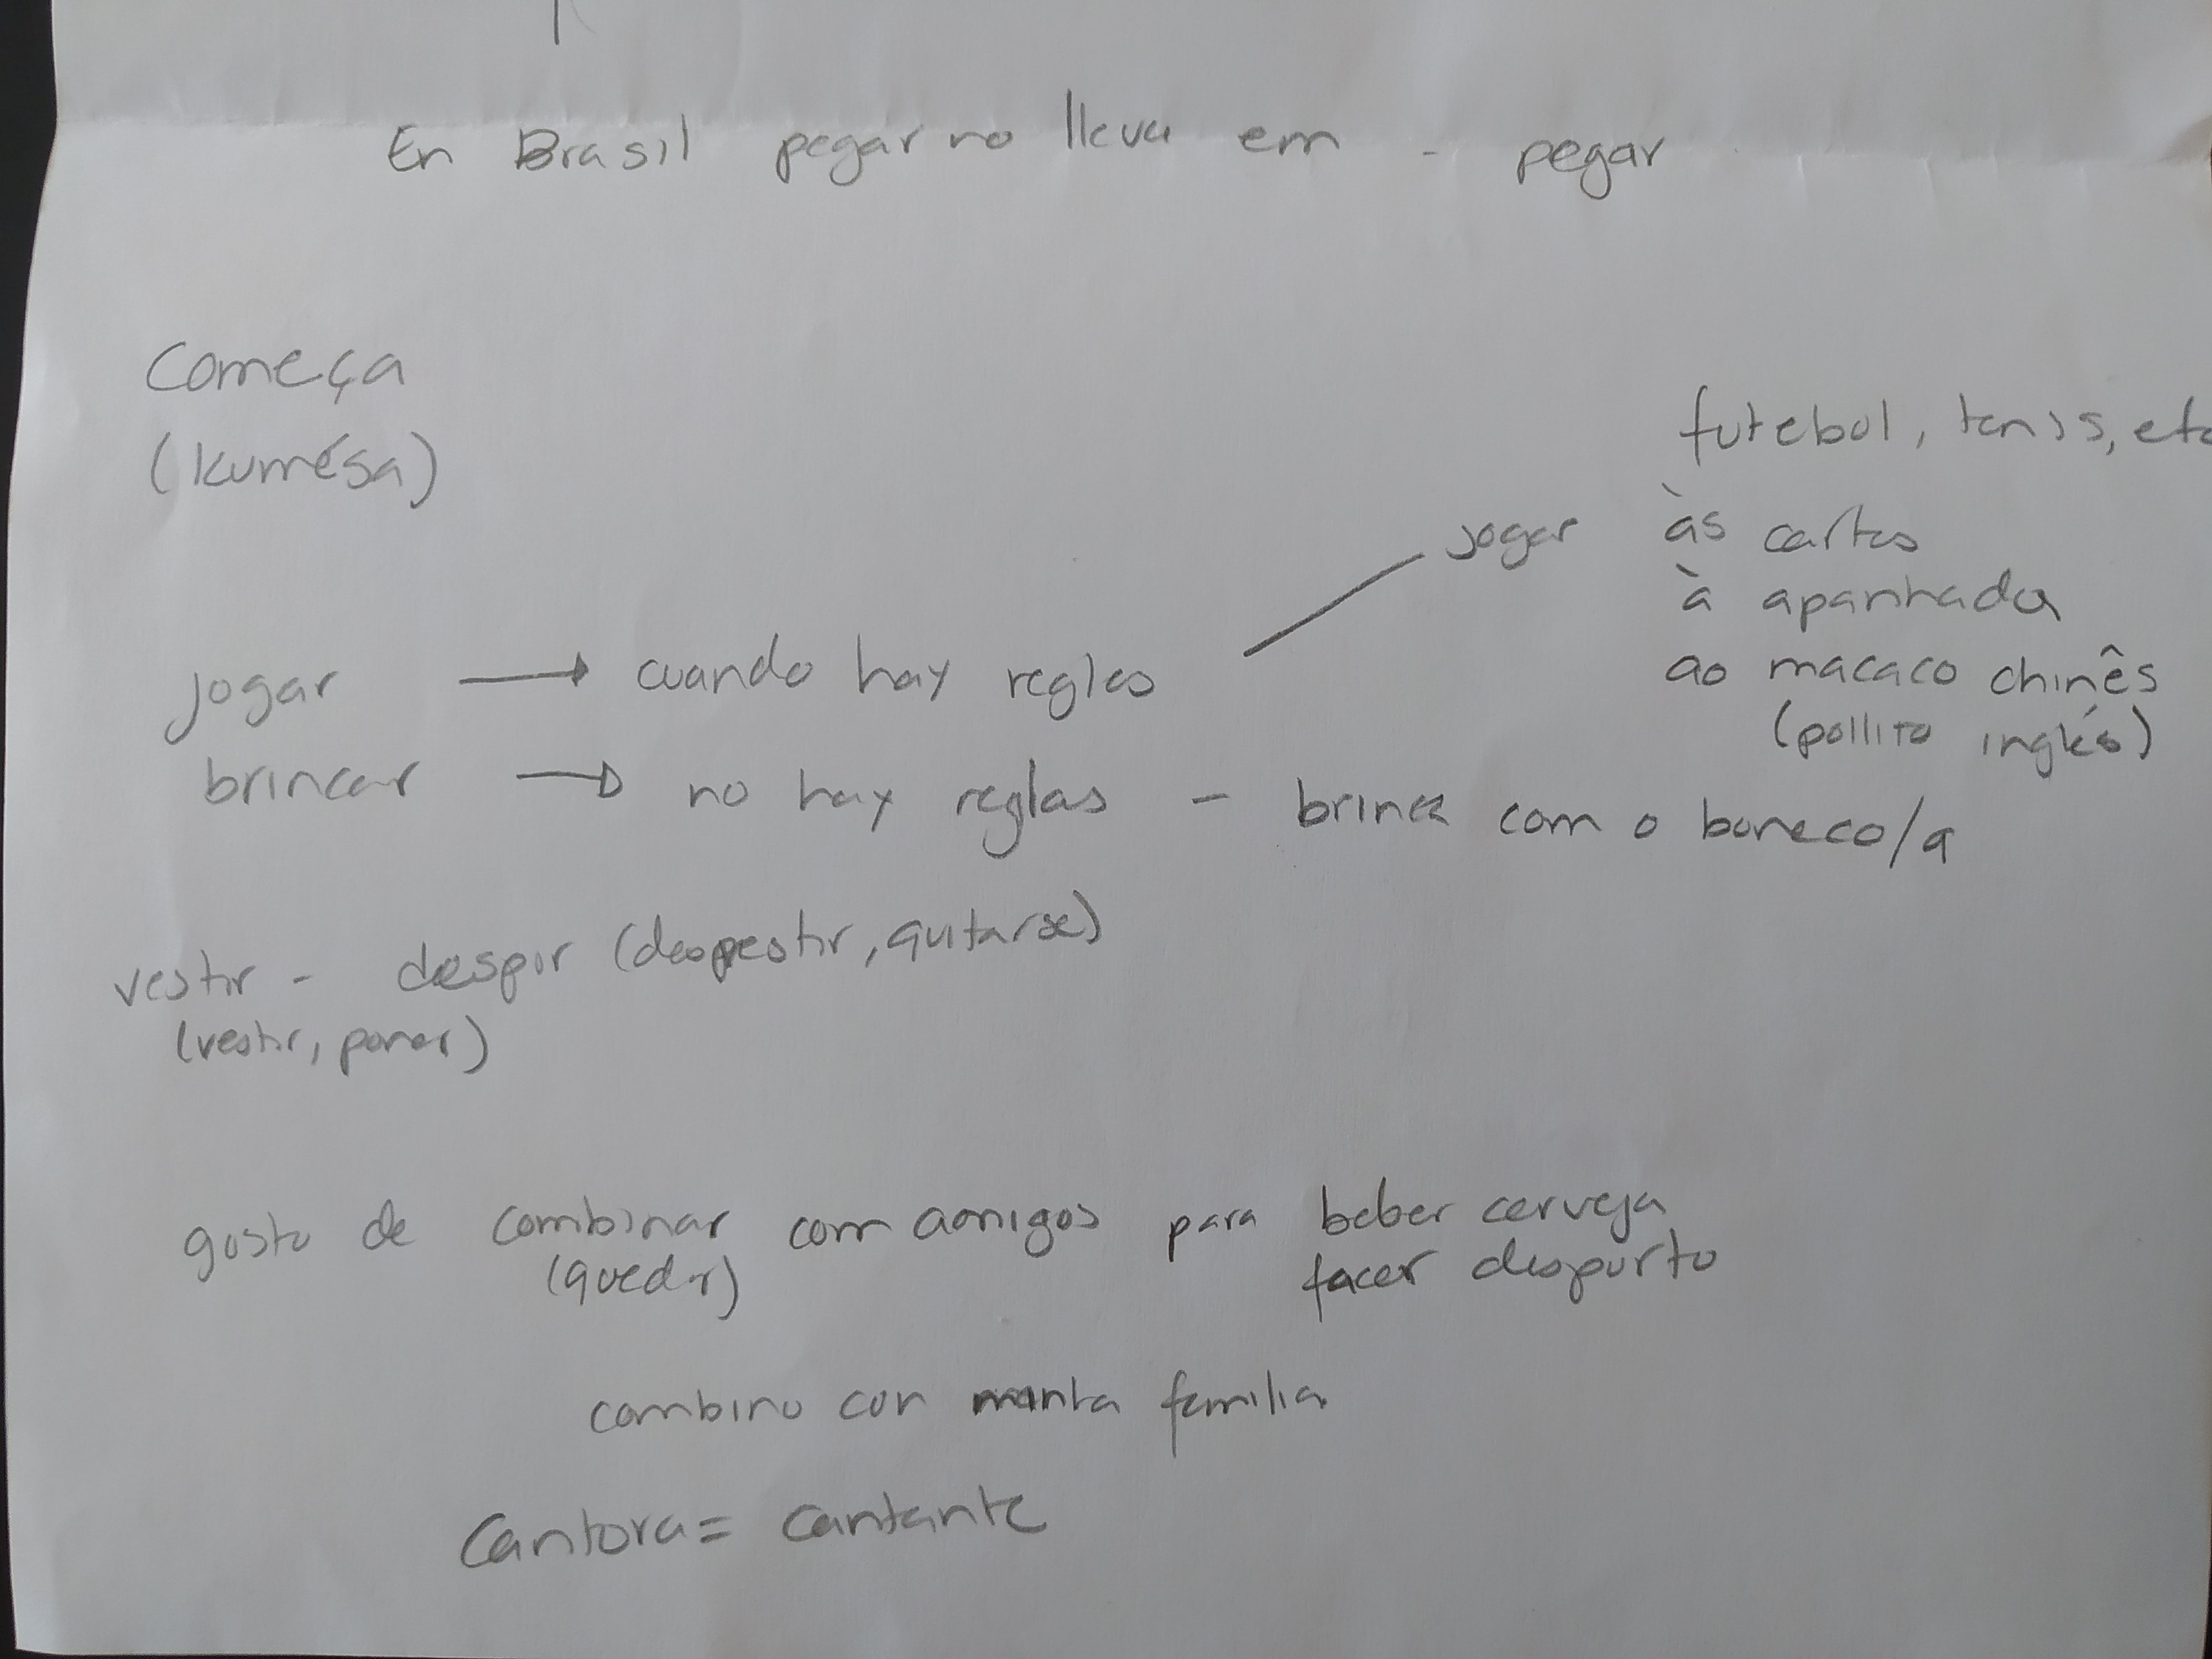 En Brasil pegar no lleva em - pegar
Começa
(kumésa)
futebol, tenis, etc
jogar às cartas
à apanhada
ao macaco chinês
(pollito inglés)
jogar → cuando hay reglas
brincar → no hay reglas - brinca com o boneco/a
vestir - despir (despestir, quitarse)
(vestir, poner)
gosto de combinar com amigos para beber cerveja
(quedar) facer desporto
combino con minha familia
Cantora = cantante